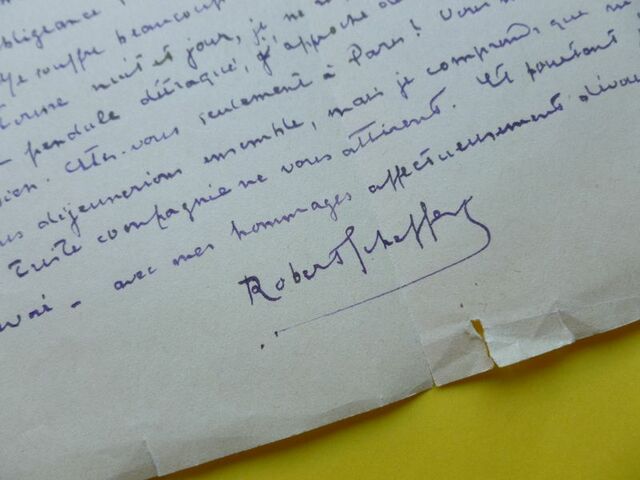 bligeance,
Je souffre beaucoup
tourne nuit et jour, je ne
pendule détraqué, j'approche de
bien. Etes-vous seulement à Paris! Vous
us déjeunerions ensemble, mais je comprends que m
triste compagnie ne vous attirent. Et pourtant
avec mes hommages affectueusement dévou
Robert Scheffer